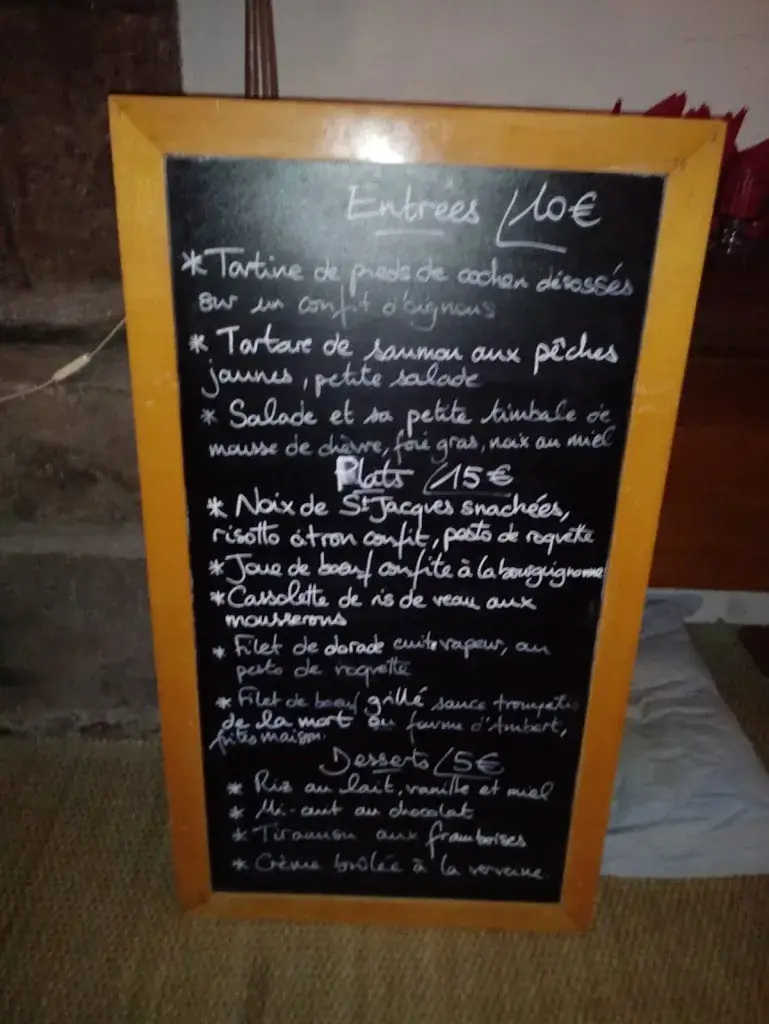 Entrées /10€
* Tartine de pieds de cochon désossés
sur un confit d'oignons
* Tartare de saumon aux pêches
jaunes, petite salade
* Salade et sa petite timbale de
mousse de chèvre, foie gras, noix au miel
Plats /15€
* Noix de St Jacques snachées,
risotto citron confit, pesto de roquette
* Joue de boeuf confite à la bourguignonne
* Cassolette de ris de veau aux
mousserons
* Filet de dorade cuite vapeur, au
pesto de roquette
* Filet de boeuf grillé sauce trompette
de la mort ou fourme d'Ambert,
frites maison.
Desserts /5€
* Riz au lait, vanille et miel
* Mi-cuit au chocolat
* Tiramisu aux framboises
* Crème brûlée à la verveine